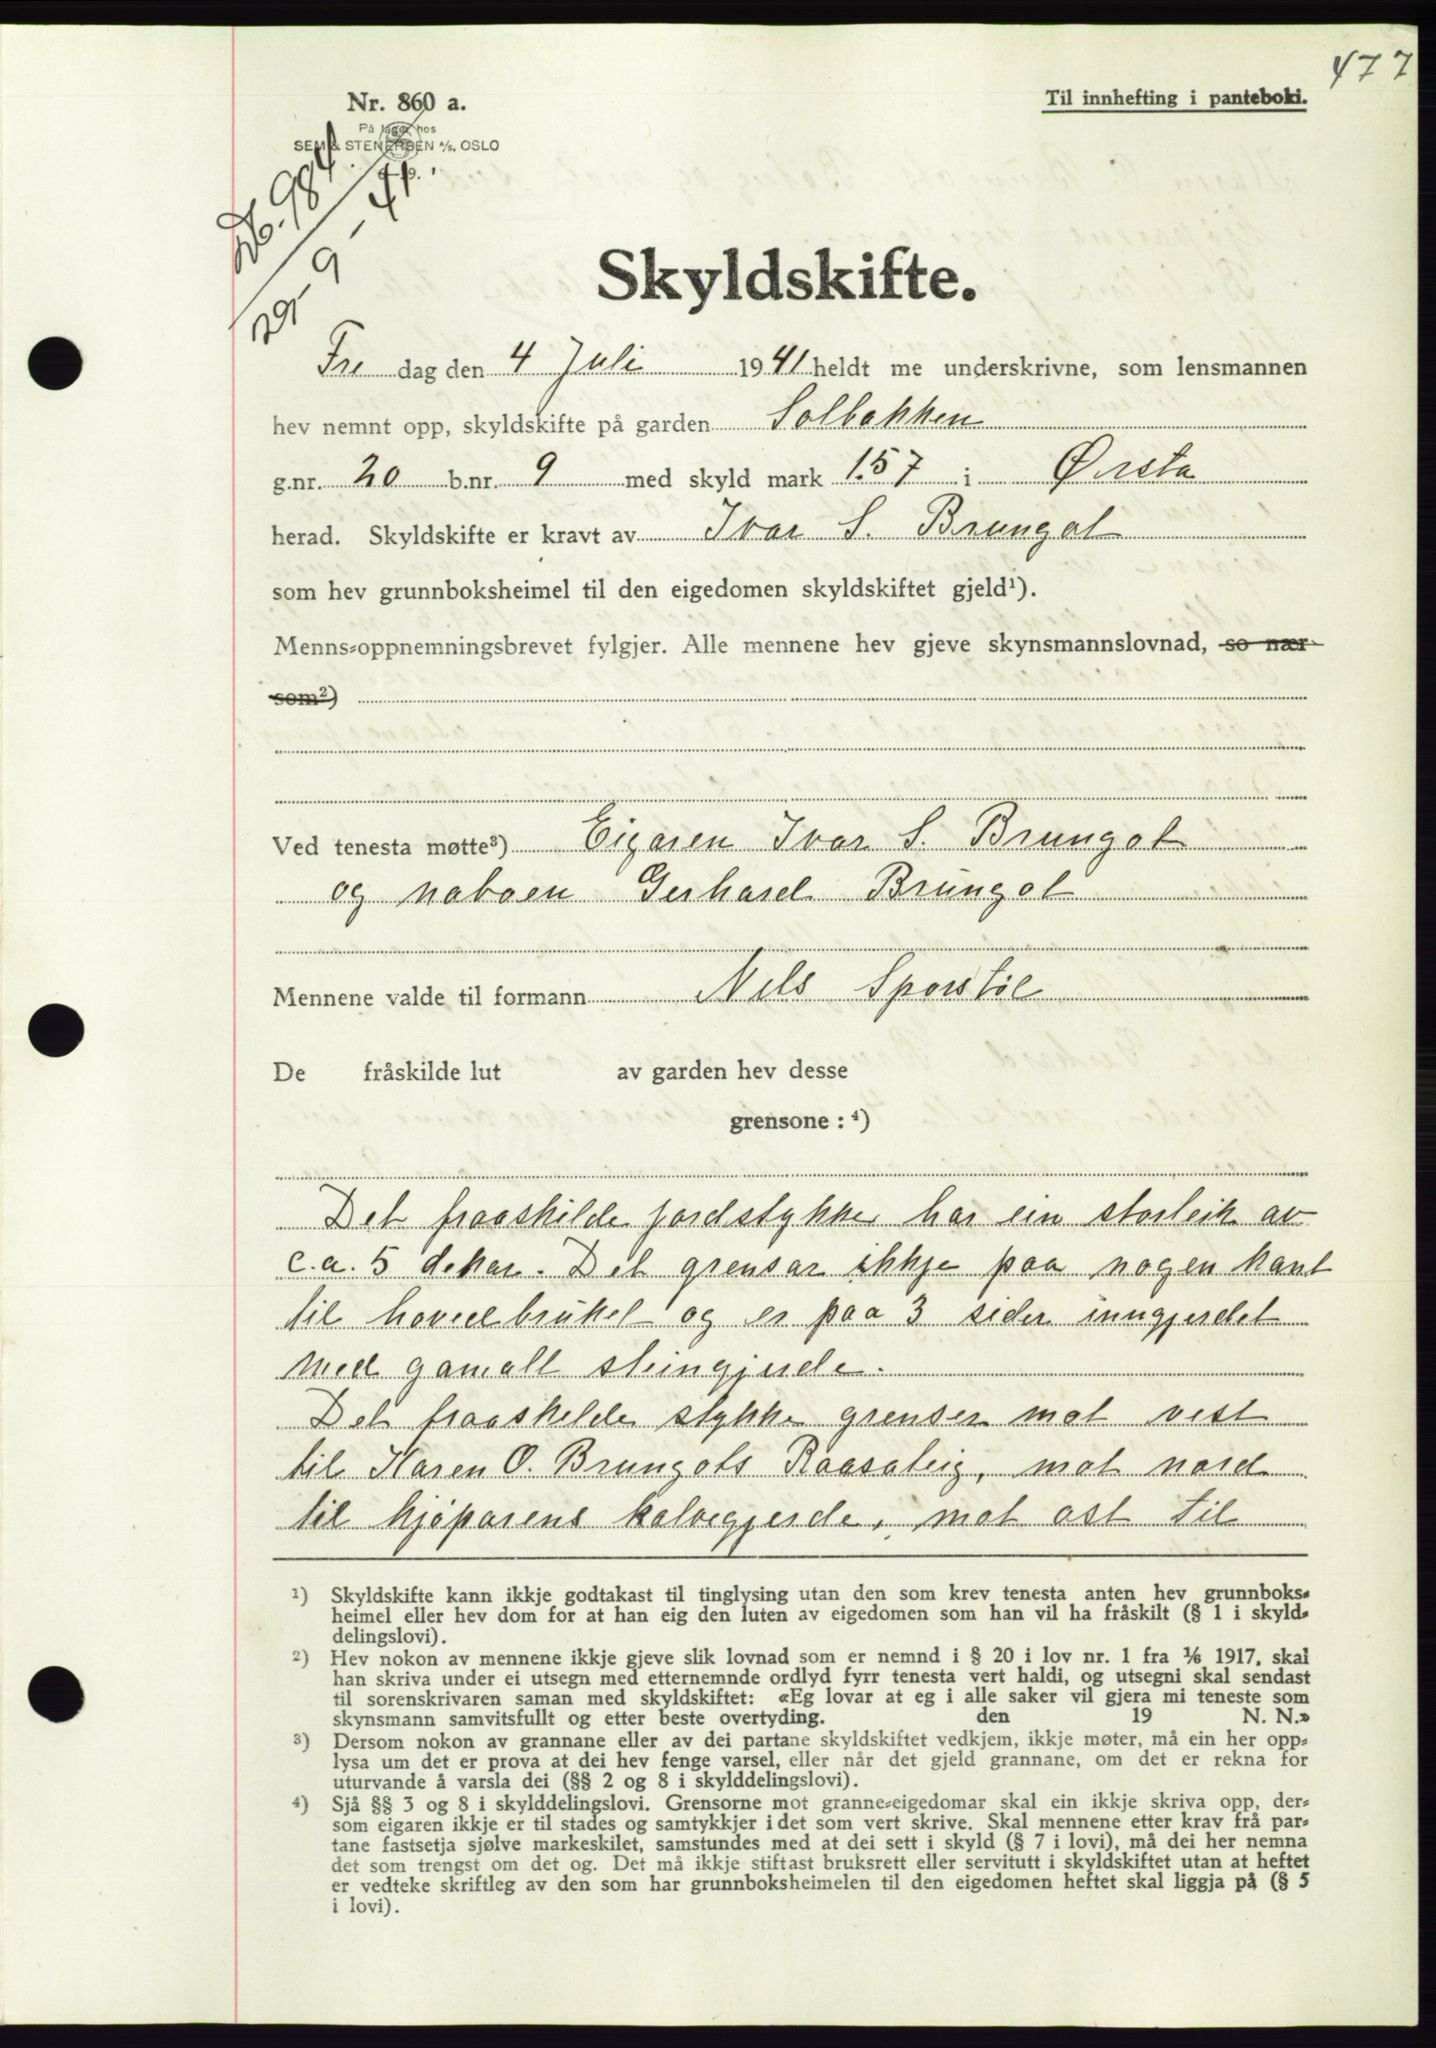 477
Nr. 860 a.
Til innhefting i panteboki.
På lager hos
SEM & STENERSEN A/S, OSLO
Db. 984
29-9-41.
Skyldskifte.
Fre dag den 4 Juli 1941 heldt me underskrivne, som lensmannen
hev nemnt opp, skyldskifte på garden Solbakken
g.nr. 20 b.nr. 9 med skyld mark 1.57 i Ørsta
herad. Skyldskifte er kravt av Ivar S. Brungot
som hev grunnboksheimel til den eigedomen skyldskiftet gjeld¹).
Menns-oppnemningsbrevet fylgjer. Alle mennene hev gjeve skynsmannslovnad, so nær
som²)
Ved tenesta møtte³) Eigaren Ivar S. Brungot
og naboen Gerhard Brungot
Mennene valde til formann Nils Sporstøl
De fråskilde lut av garden hev desse
grensone : ⁴)
Det fraaskilde jordstykke har ein storleik av
c.a. 5 dekar. Det grensar ikkje paa nogen kant
til hovedbruket og er paa 3 sider inngjerdet
med gamalt steingjerde.
Det fraaskilde stykke grenser mot vest
til Karen O. Brungots Raasateig, mot nord
til kjøparens kalvegjerde, mot ost til
¹) Skyldskifte kann ikkje godtakast til tinglysing utan den som krev tenesta anten hev grunnboks-
heimel eller hev dom for at han eig den luten av eigedomen som han vil ha fråskilt (§ 1 i skyld-
delingslovi).
²) Hev nokon av mennene ikkje gjeve slik lovnad som er nemnd i § 20 i lov nr. 1 fra 1/6 1917, skal
han skriva under ei utsegn med etternemnde ordlyd fyrr tenesta vert haldi, og utsegni skal sendast
til sorenskrivaren saman med skyldskiftet: «Eg lovar at eg i alle saker vil gjera mi teneste som
skynsmann samvitsfullt og etter beste overtyding. den 19 N. N.»
³) Dersom nokon av grannane eller av dei partane skyldskiftet vedkjem, ikkje møter, må ein her opp-
lysa um det er prova at dei hev fenge varsel, eller når det gjeld grannane, om det er rekna for
uturvande å varsla dei (§§ 2 og 8 i skylddelingslovi).
⁴) Sjå §§ 3 og 8 i skylddelingslovi. Grensorne mot granne-eigedomar skal ein ikkje skriva opp, der-
som eigaren ikkje er til stades og samtykkjer i det som vert skrive. Skal mennene etter krav frå par-
tane fastsetja sjølve markeskilet, samstundes med at dei sett i skyld (§ 7 i lovi), må dei her nemna
det som trengst om det og. Det må ikkje stiftast bruksrett eller servitutt i skyldskiftet utan at heftet
er vedteke skriftleg av den som har grunnboksheimelen til den eigedomen heftet skal liggja på (§ 5
i lovi).